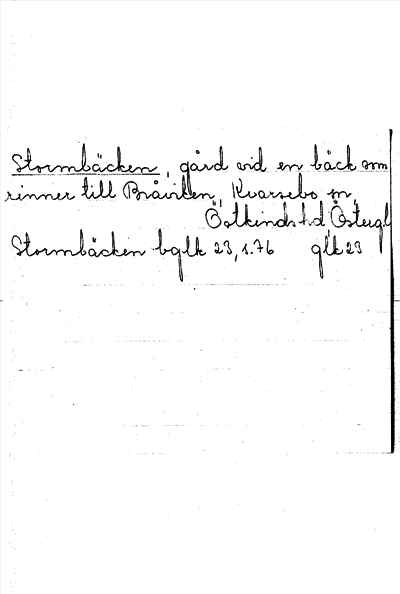 Stormbäcken, gård vid en bäck som
rinner till Bråviken, Kvarsebo sn,
Östkinds hd, Östergl
Stormbäcken bglk 23, 1.76 glk 23